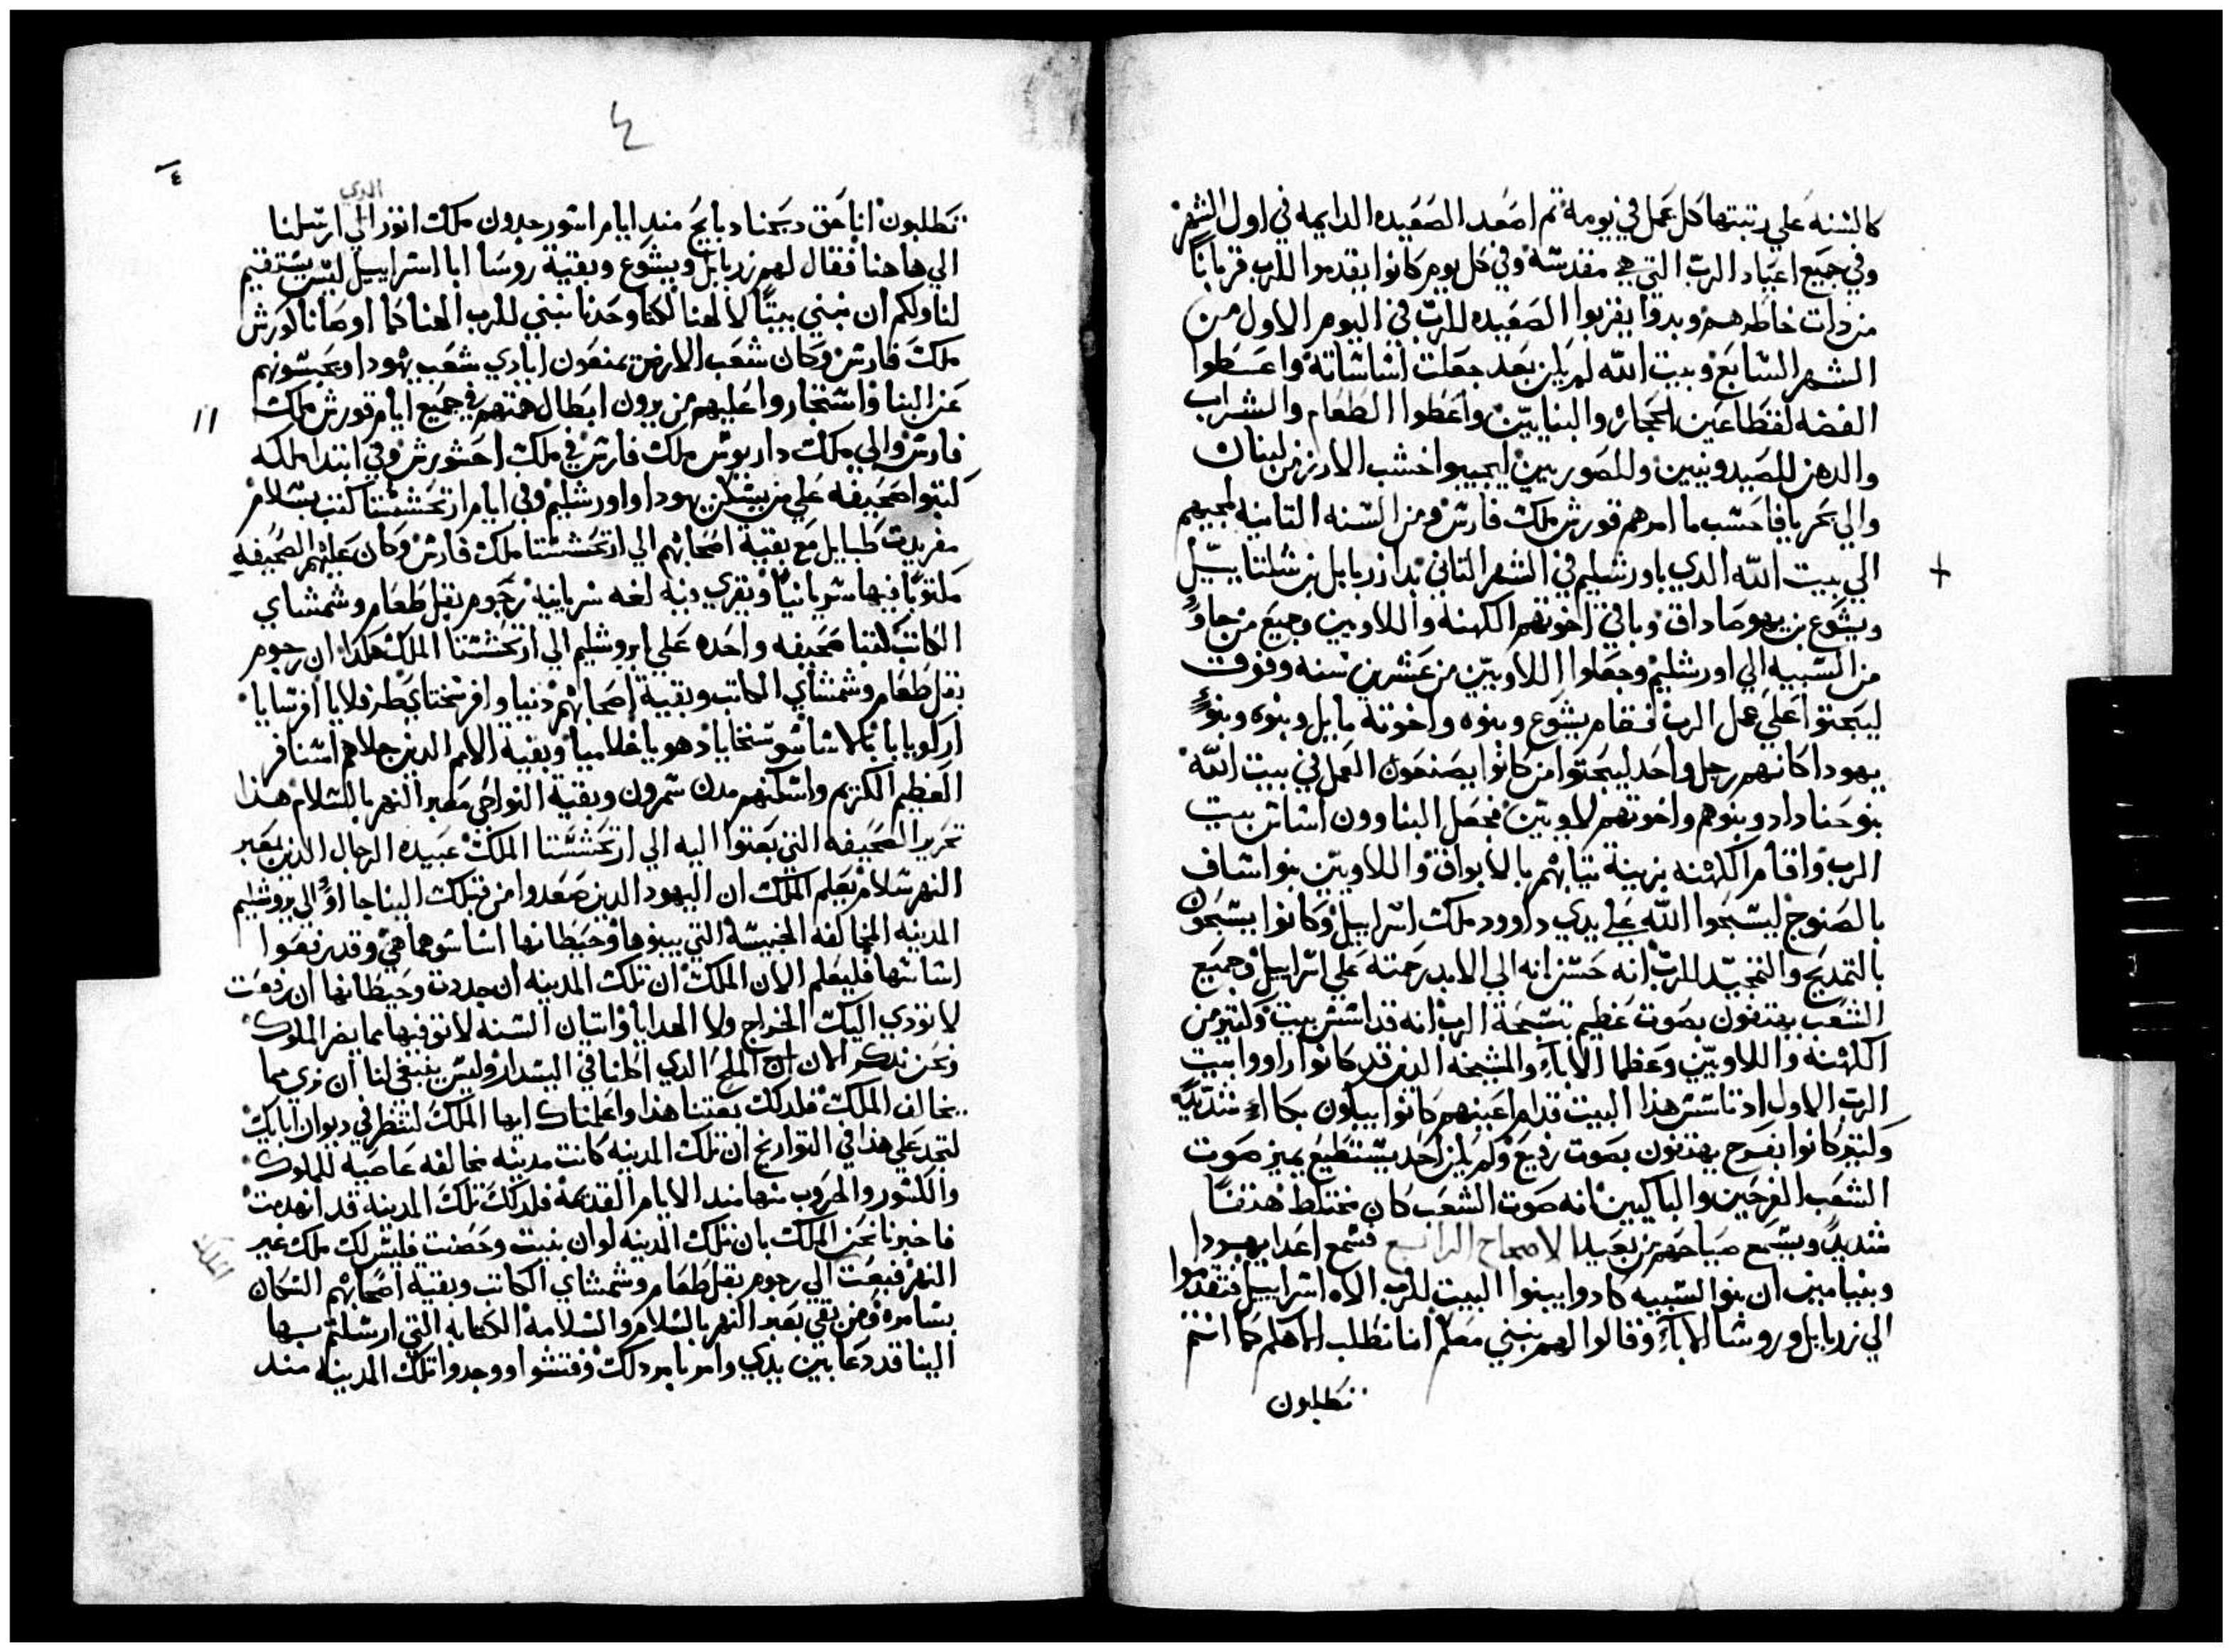 كالسنه علي رتبتها كل عمل في يومه تم اصعد الصعيده الدايمه في اول الشهر
وفي جميع اعياد الرب التي هي مقدسه وفي كل يوم كانوا يقدموا للرب قربانا
من دات خاطرهم وبدوا يقربوا الصعيده للرب في اليوم الاول من
الشهر السابع وبيت الله لم يكن بعد جعلت اساساته واعطوا
الفضه لقطاعين الحجاره والبنايين واعطوا الطعام والشراب
والدهن للصيدونيين وللصوريين ليجيبوا خشب الارز من لبنان
والي بحر يافا حسب ما امرهم قورش ملك فارس ومن السنه التانيه لمجيهم
الي بيت الله الدي باورشليم في الشهر التاني بدا زربابل بن شلتاييل
ويشوع بن يهوصاداق وباقي اخوتهم الكهنه واللاويين وجميع من جاو
من السبيه الي اورشليم وجعلوا اللاويين من عشرين سنه وفوق
ليبحتوا علي عمل الرب فقام يشوع وبنوه واخوته مايل وبنوه وبنو
يهودا كانهم رجل واحد ليبحتوا من كانوا يصنعون العمل في بيت الله
بنو حناداد وبنوهم واخوتهم لاويين فجعل البناوون اساس بيت
الرب واقام الكهنه بزينة تيابهم بالابواق واللاويين بنو اساف
بالصنوج ليسبحوا الله علي يدي داوود ملك اسراييل وكانوا يسبحون
بالتمديح والتمجيد للرب انه حسن انه الي الابد رحمته علي اسراييل وجميع
الشعب يهتفون بصوت عظيم بتسبحة الرب انه قد اسس بيت وكتير من
الكهنه واللاويين وعظما الابا والمشيخه الدين قد كانوا راووا بيت
الرب الاول اد تاسس هذا البيت قدام اعينهم كانوا يبكون بكاا شديدا
وكتير كانوا بفرح يهتفون بصوت رفيع ولم يكن احد يستطيع يميز صوت
الشعب الفرحين والباكيين انه صوت الشعب كان مختلط هتفا
شديدا ويسمع صياحهم من بعيد الاصحاح الرابع فسمع اعدا يهودا
وبنيامين ان بنو السبيه كادوا يبنوا البيت للرب الاه اسراييل فتقدموا
الي زربابل وروسا الابا وقالوا لهم نبني معكم اننا نطلب الاهكم كما انتم
تطلبون
٤
٤
الدي
تطلبون انا حق دبحنا دبايح مند ايام اسور حدون ملك اتور الي ارسلنا
الي هاهنا فقال لهم زربابل ويشوع وبقية روسا ابا اسراييل ليس يستقيم
لنا ولكم ان نبني بيتا لالهنا لكنا وحدنا نبني للرب الهنا كما اوصانا كورش
ملك فارس وكان شعب الارض يمنعون ايادي شعب يهودا ويحبسونهم
عن البنا واستجاروا عليهم من يرون ابطال همتهم في جميع ايام قورش ملك
١١
فارس والي ملك داريوش ملك فارس في ملك احشورش وفي ابتدا ملكه
كتبوا صحيفه علي من يسكن يهودا واورشليم وفي ايام ارتحششتا كتب بشلام
مفريدت طبايل مع بقية اصحابهم الي ارتحششتا ملك فارس وكان عليهم الصحيفه
مكتوبا فيها سريانيا ويقري فيه لغه سريانيه رحوم بعل طعام وشمشاي
الكاتب كتبا صحيفه واحده علي ايروشليم الي ارتحششتا الملك هكدا ان رحوم
بعل طعام وشمشاي الكاتب وبقية اصحابهم دنيا وافرستختاي طرفلايا افرسايا
اركويا بابلا شاسوستخايا دهويا غلاميا وبقية الامم الدين جلاهم اسنافر
العظيم الكريم واسكنهم مدن شمرون وبقية النواحي معبر النهر بالسلام هذا
تحرير الصحيفه التي بعتوا اليه الي ارتحششتا الملك عبيده الرجال الدين بعبر
النهر سلام يعلم الملك ان اليهود الدين صعدوا من قبلك الينا جااوا الي يروشليم
المدينه المخالفه الخبيسه التي يبنوها وحيطانها اساسوهما هي وقد رفعوا
اساسها فليعلم الان الملك ان تلك المدينه ان جددت وحيطانها ان رفعت
لا تودي اليك الخراج ولا الهدايا واتيان السنه لا توفيها مما يضر الملوك
ونحن ندكر الان ان الملح الدي اكلنا في البسدار وليس ينبغي لنا ان نري مما
يخالف الملك فلدلك بعتنا هذا واعلمناك ايها الملك لتنظر في ديوان اباك
لتجد علي هذا في التواريخ ان تلك المدينه كانت مدينه مخالفه عاصيه للملوك
والكسور والحروب منها مند الايام القديمه فلدلك تلك المدينه قد انهدمت
فاخبرنا نحن الملك بان تلك المدينه لو ان بنيت وحصنت فليس لك ملك عبر
النهر فبعت الي رحوم بعل طعام وشمشاي الكاتب وبقية اصحابهم السكان
بسامره ومن بقي بعبر النهر بالسلام والسلامه الكتابه التي ارسلتم بها
الينا قد دعا بين يدي وامرنا بدلك وفتشوا ووجدوا تلك المدينه مند